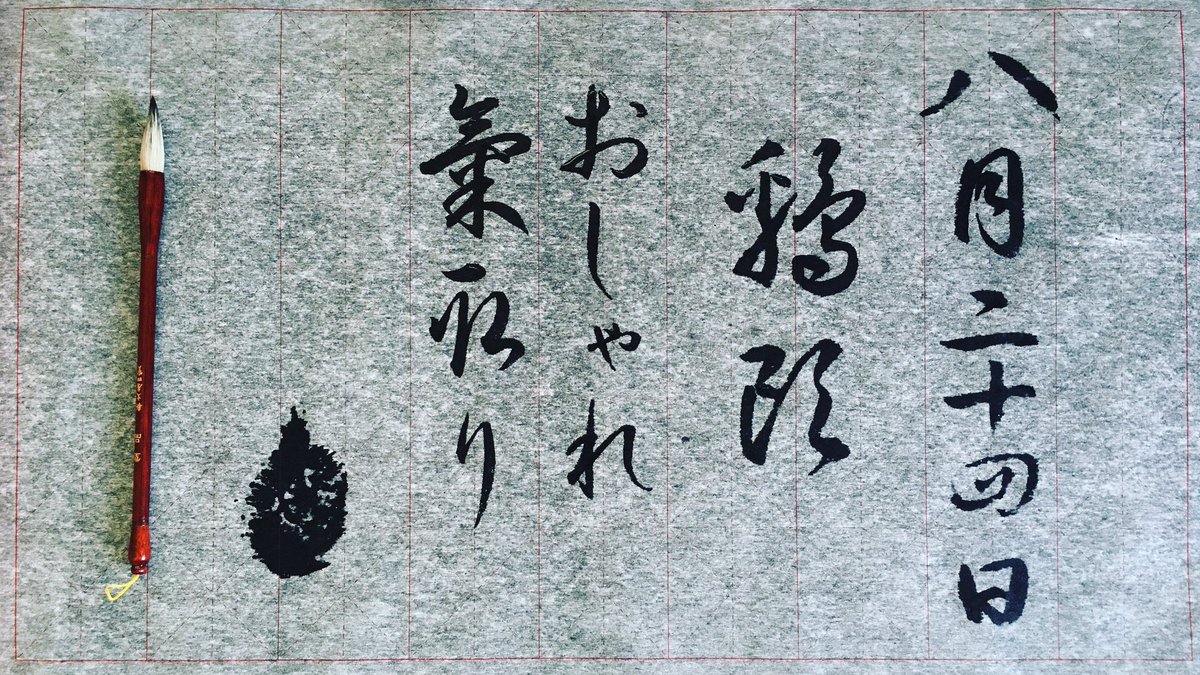 八月二十四日
鶏頭
おしゃれ
氣取り